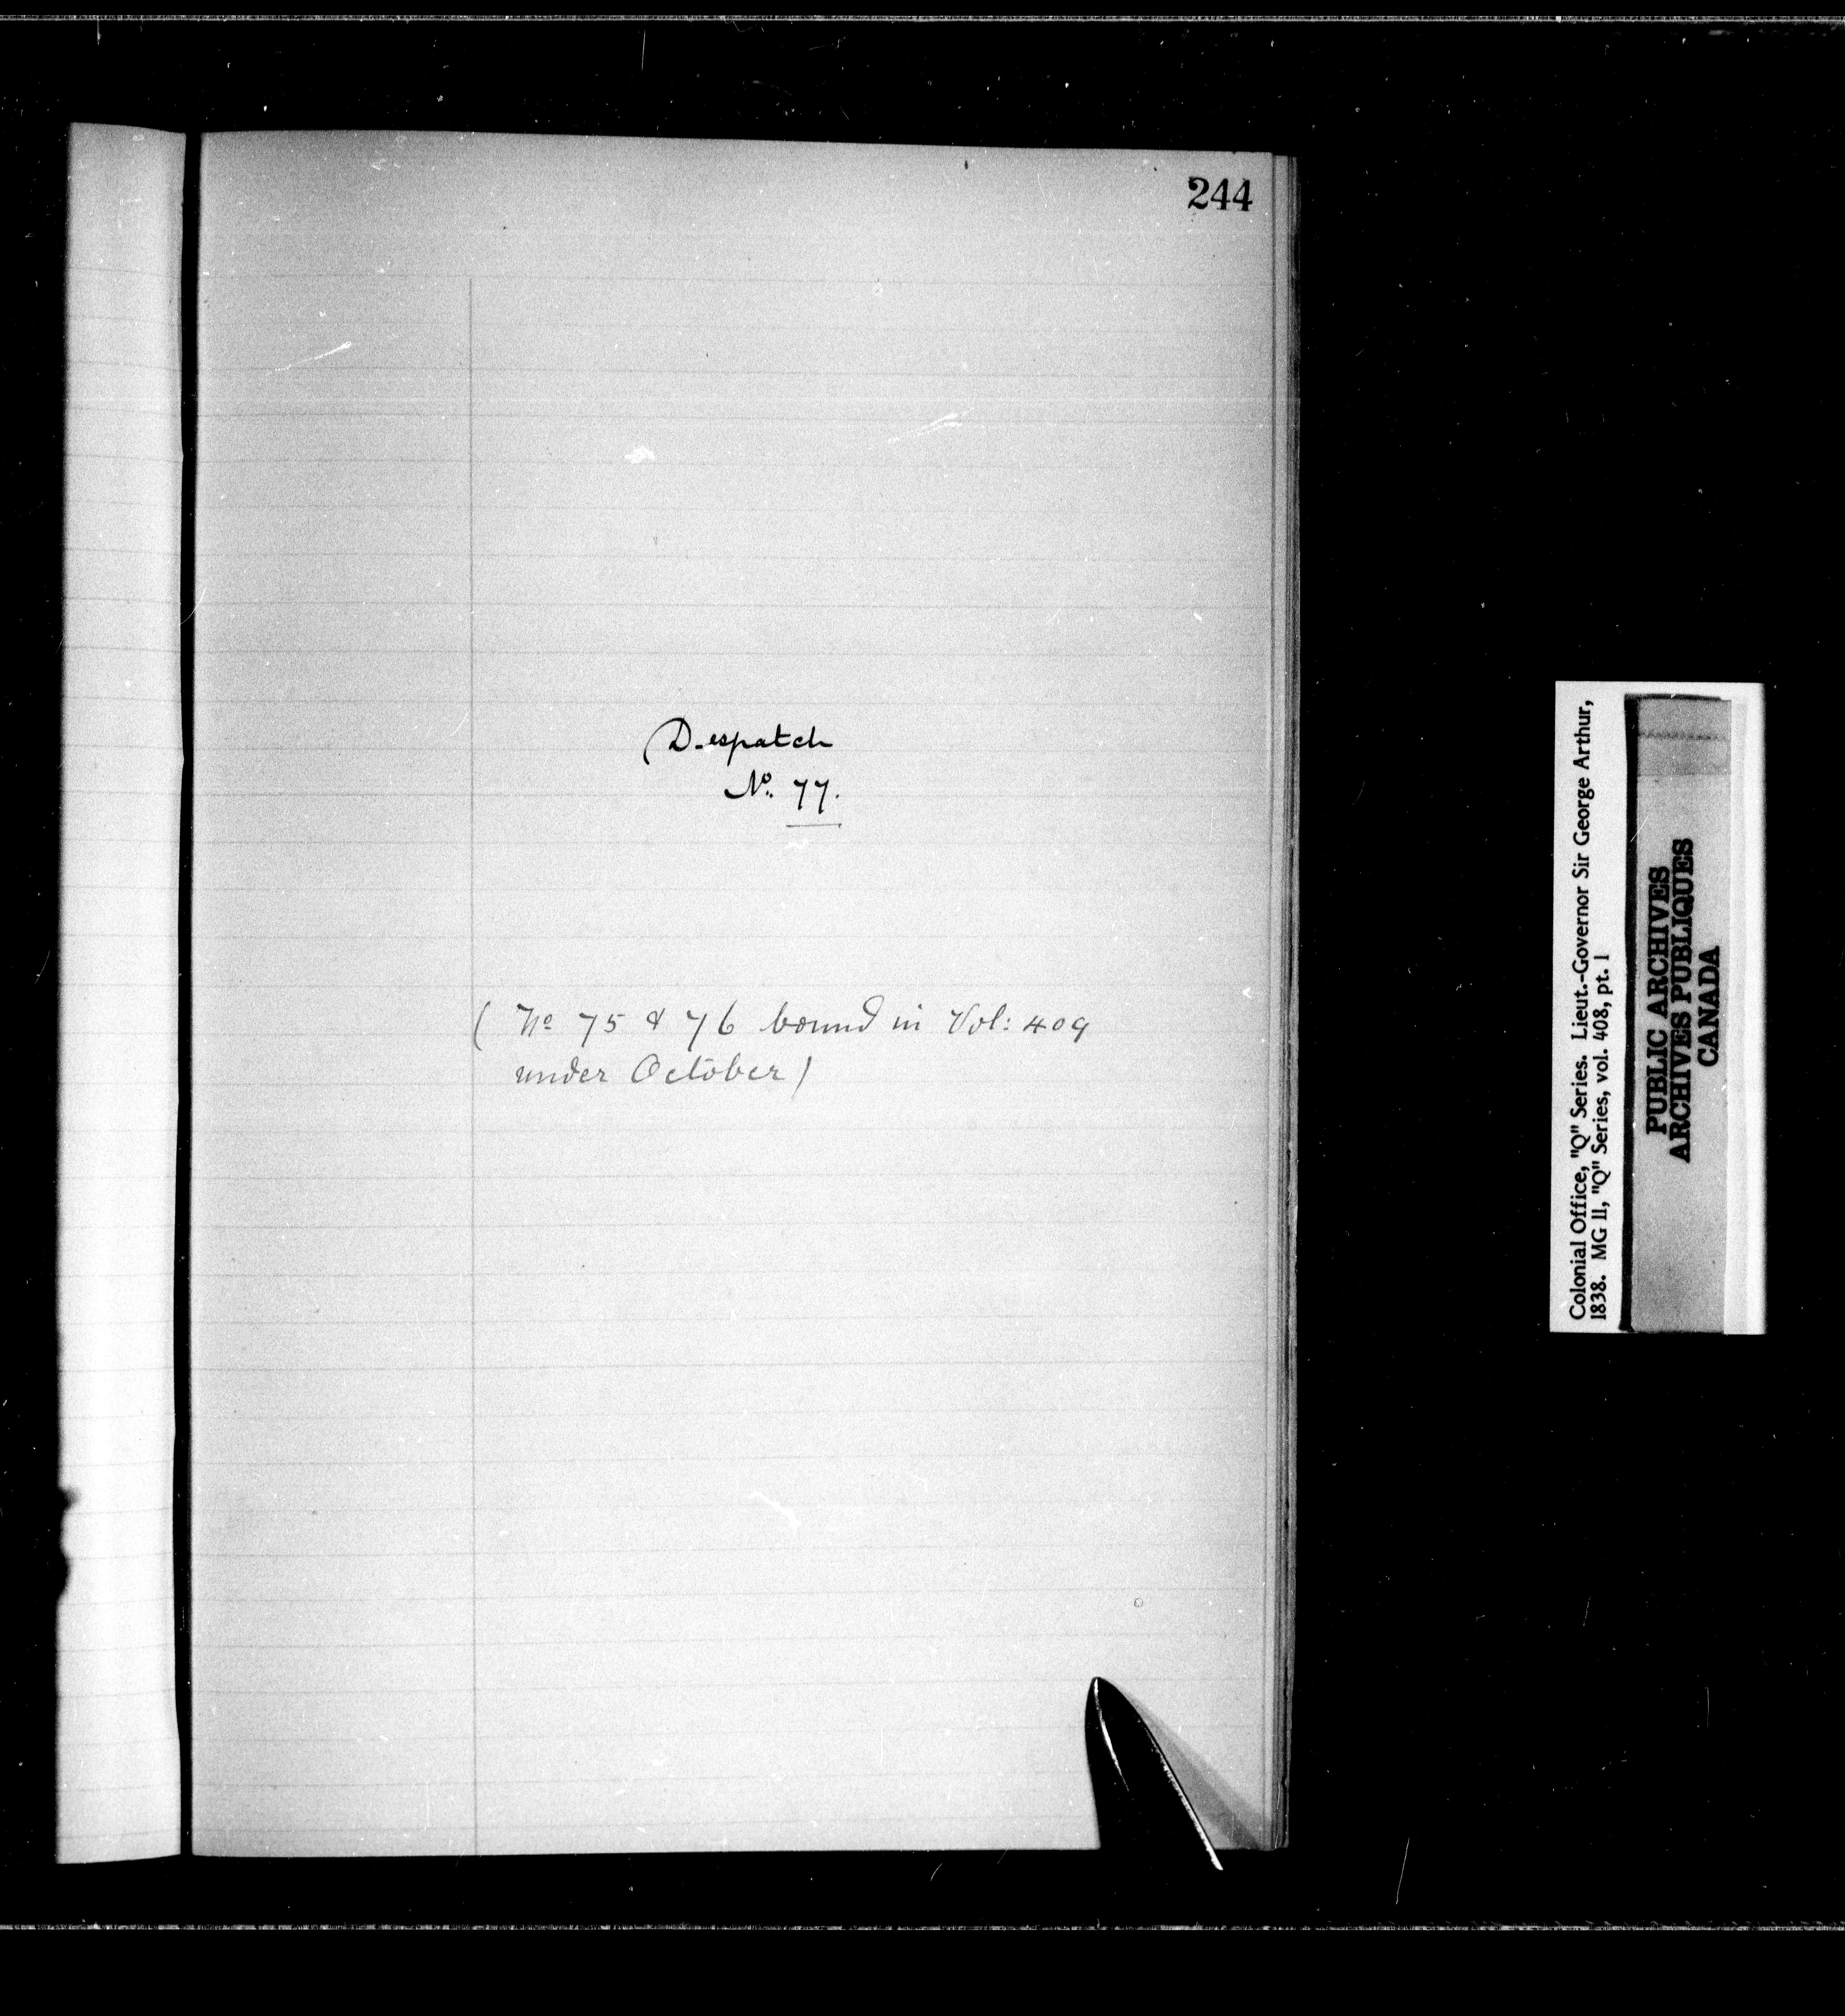 244
Despatch
No. 77.
( No 75 & 76 bound in Vol: 409
under October)
Colonial Office, "Q" Series. Lieut.-Governor Sir George Arthur,
1838. MG 11, "Q" Series, vol. 408, pt. 1
PUBLIC ARCHIVES
ARCHIVES PUBLIQUES
CANADA